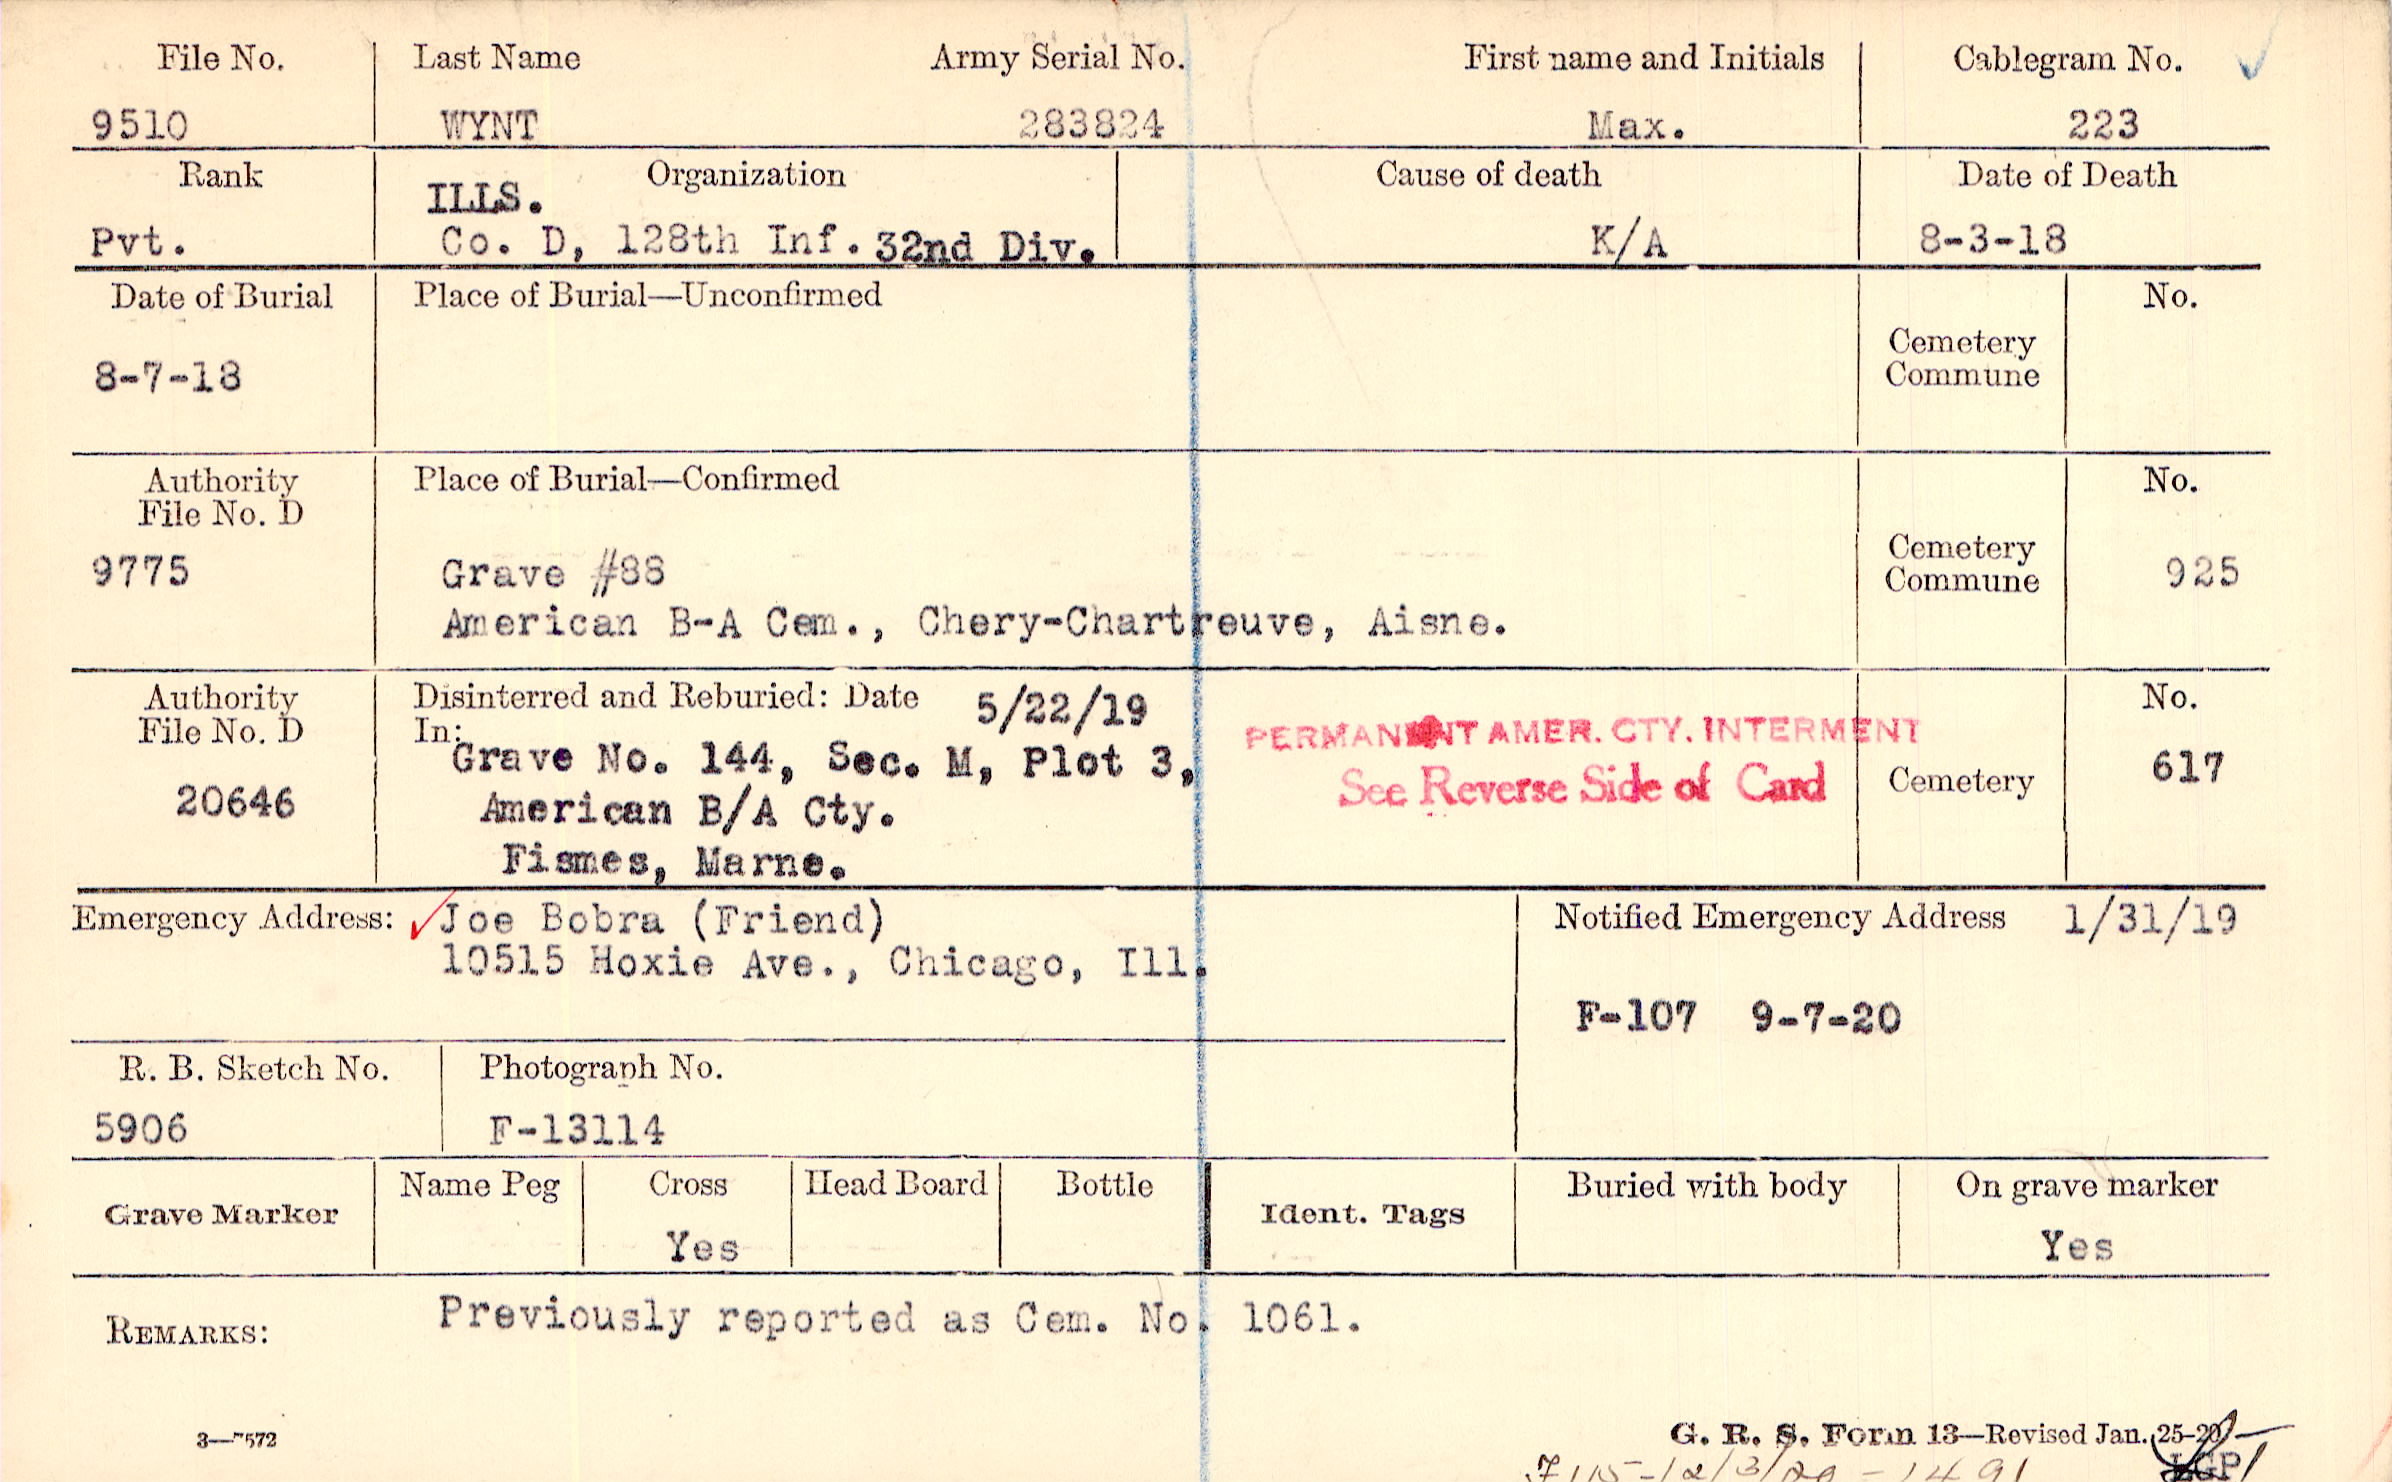 File No. Last Name Army Serial No. First name and Initials Cablegram No.
9510 WYNT 283824 Max. 223
Rank Organization Cause of death Date of Death
ILLS.
Pvt. Co. D, 128th Inf. 32nd Div. K/A 8-3-18
Date of Burial Place of Burial—Unconfirmed No.
Cemetery
Commune
8-7-18
Authority Place of Burial—Confirmed No.
File No. D
Cemetery
9775 Grave #88 Commune 925
American B-A Cem., Chery-Chartreuve, Aisne.
Authority Disinterred and Reburied: Date 5/22/19 No.
File No. D In:
PERMANENT AMER. CTY. INTERMENT
Grave No. 144, Sec. M, Plot 3, See Reverse Side of Card Cemetery 617
20646 American B/A Cty.
Fismes, Marne.
Emergency Address: Joe Bobra (Friend) Notified Emergency Address 1/31/19
10515 Hoxie Ave., Chicago, Ill.
F-107 9-7-20
R. B. Sketch No. Photograph No.
5906 F-13114
Grave Marker Name Peg Cross Head Board Bottle Ident. Tags Buried with body On grave marker
Yes Yes
REMARKS: Previously reported as Cem. No. 1061.
3—7572 G. R. S. Form 13—Revised Jan. 25-20
LGP